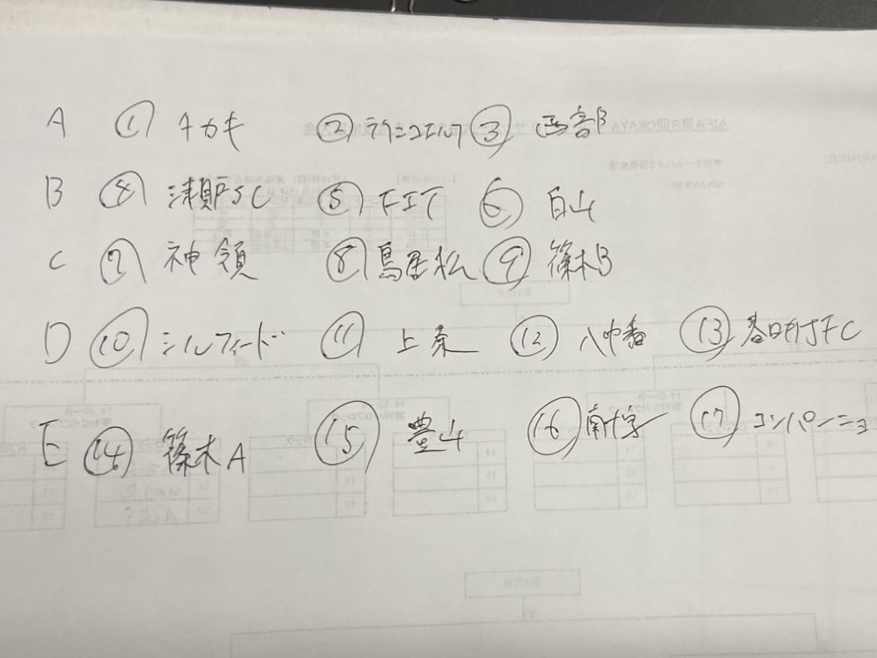 A ① タカキ ② ラランコエルフ ③ 西部
B ④ 瀬戸SC ⑤ FIT ⑥ 白山
C ⑦ 神領 ⑧ 鳥居松 ⑨ 篠木B
D ⑩ シルフィード ⑪ 上条 ⑫ 八中春 ⑬ 春日井JFC
E ⑭ 篠木A ⑮ 豊山 ⑯ ⑰ コンパーニョ